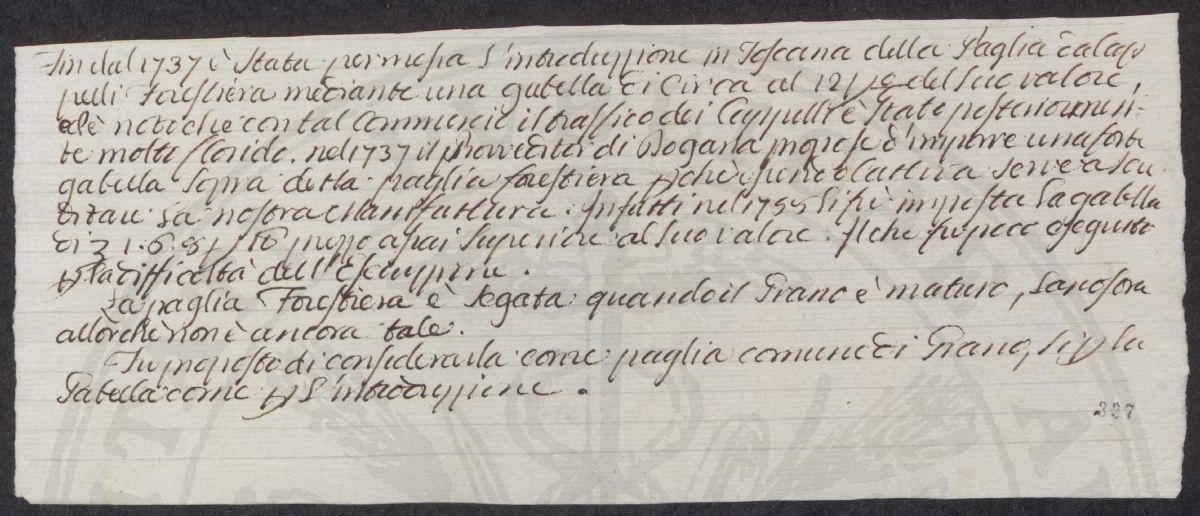 Fin dal 1737 è Stata permessa l'introduzzione in Toscana della Paglia da Cap
pelli Forestiera mediante una gabella di Circa al 12 p% del suo valore,
ed è noto che con tal Commercio il traffico dei Cappelli è Stato posteriormen-
te molto florido. nel 1737 il Provveditor di Dogana propose d'imporre una forte
gabella Sopra detta paglia forestiera
la nostra Manifattura. Infatti nel 1755 li fù imposta la gabella
di 1.6.8 prezzo assai Superiore al Suo valore. Il che fu poco eseguito
p la difficoltà dell'Esecuzzione.
La paglia Forestiera è Segata quando il Grano è maturo, la nostra
allorchè non è ancora tale.
Fu proposto di considerarla come paglia comune di Grano, si p la
Gabella come p l'introduzzione.
327